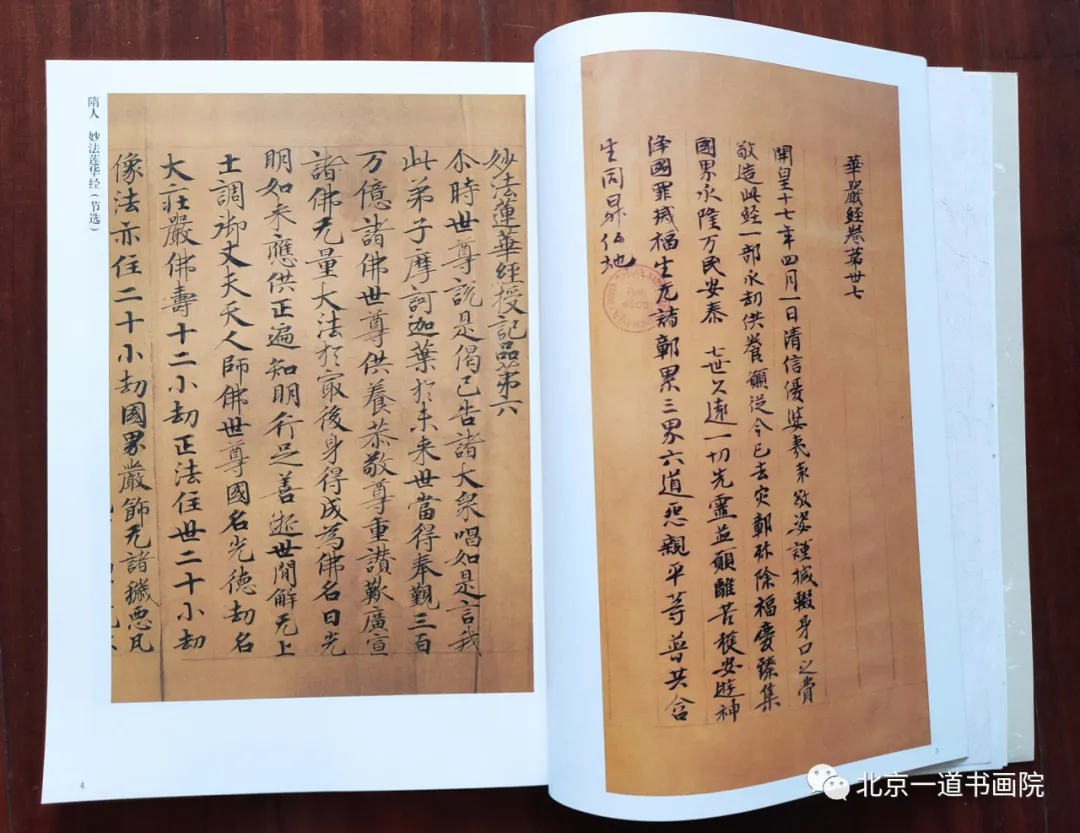 隋人 妙法莲华经(节选)
妙法蓮華經授記品第六
尒時世尊説是偈已告諸大衆唱如是言我
此弟子摩訶迦葉於未来世當得奉覲三百
万億諸佛世尊供養恭敬尊重讃歎廣宣
諸佛无量大法於冣後身得成為佛名曰光
明如来應供正遍知明行足善逝世間解无上
士調御丈夫天人師佛世尊國名光德劫名
大莊嚴佛壽十二小劫正法住世二十小劫
像法亦住二十小劫國界嚴飾无諸穢惡瓦
4
華嚴經卷第卅七
開皇十七年四月一日清信優婆夷袁敬姿謹减輟身口之費
敬造此經一部永劫供養願從今已去灾鄣殄除福慶臻集
國界永隆万民安泰 七世久遠一切先靈並願離苦獲安遊神
浄國罪滅福生无諸鄣累三界六道怨親平等普共含
生同昇仏地
3
北京一道书画院